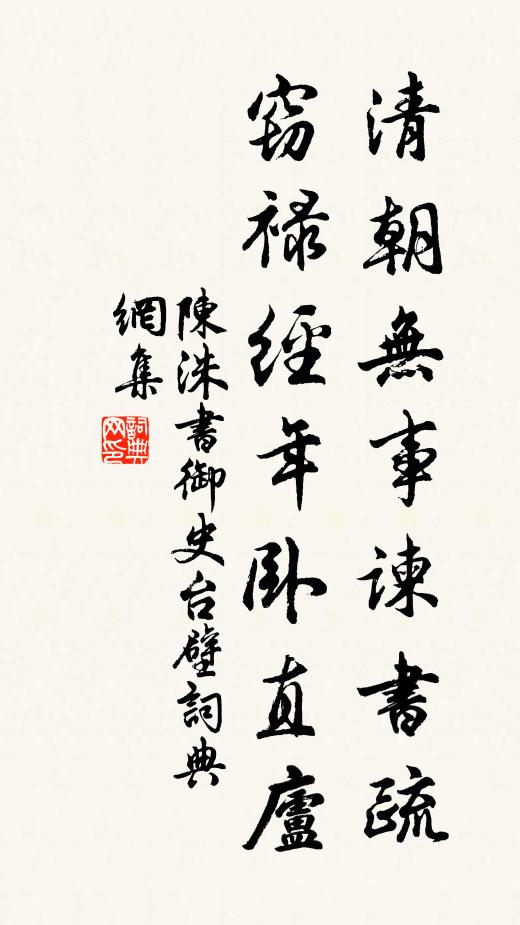 清朝無事諫書疏
竊祿經年卧直廬
陳洙書御史台壁詞典
網集
詞典
网印